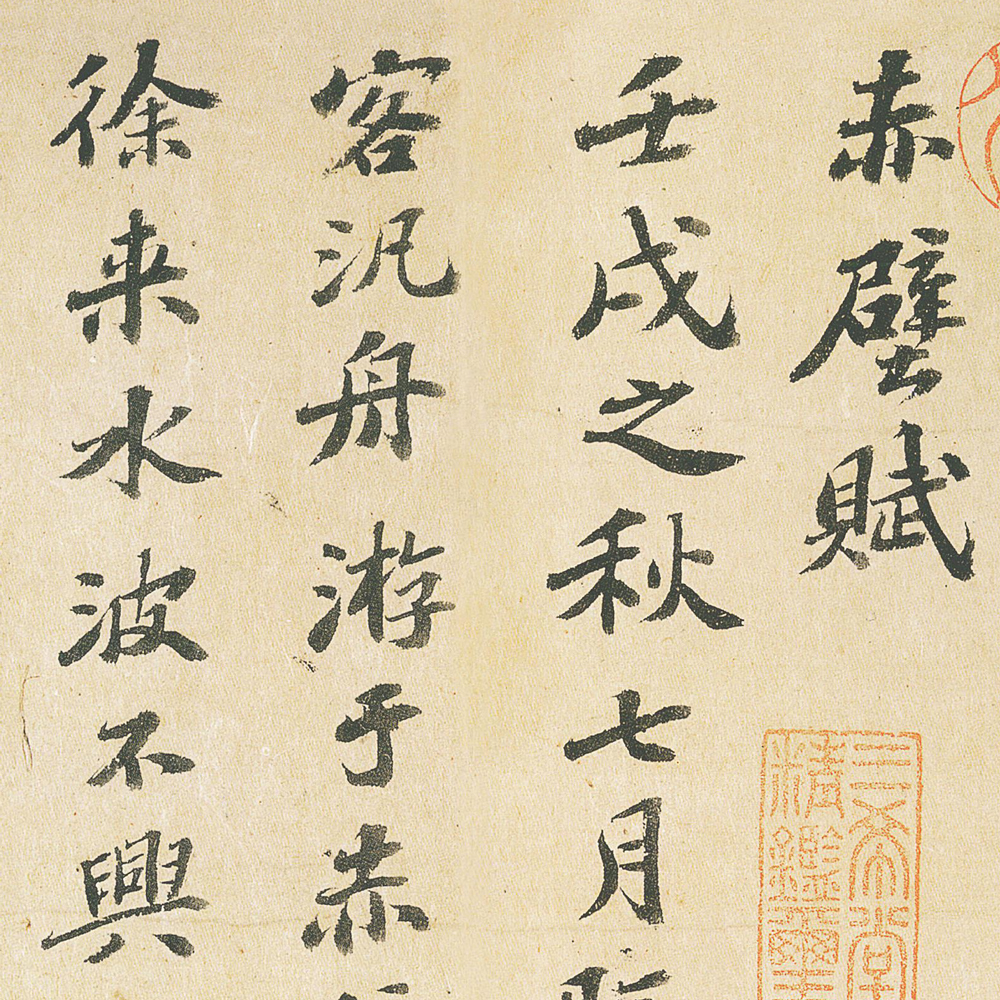 赤壁賦
壬戌之秋七月
客汎舟游于赤
徐来水波不興
三希堂
精鑑璽